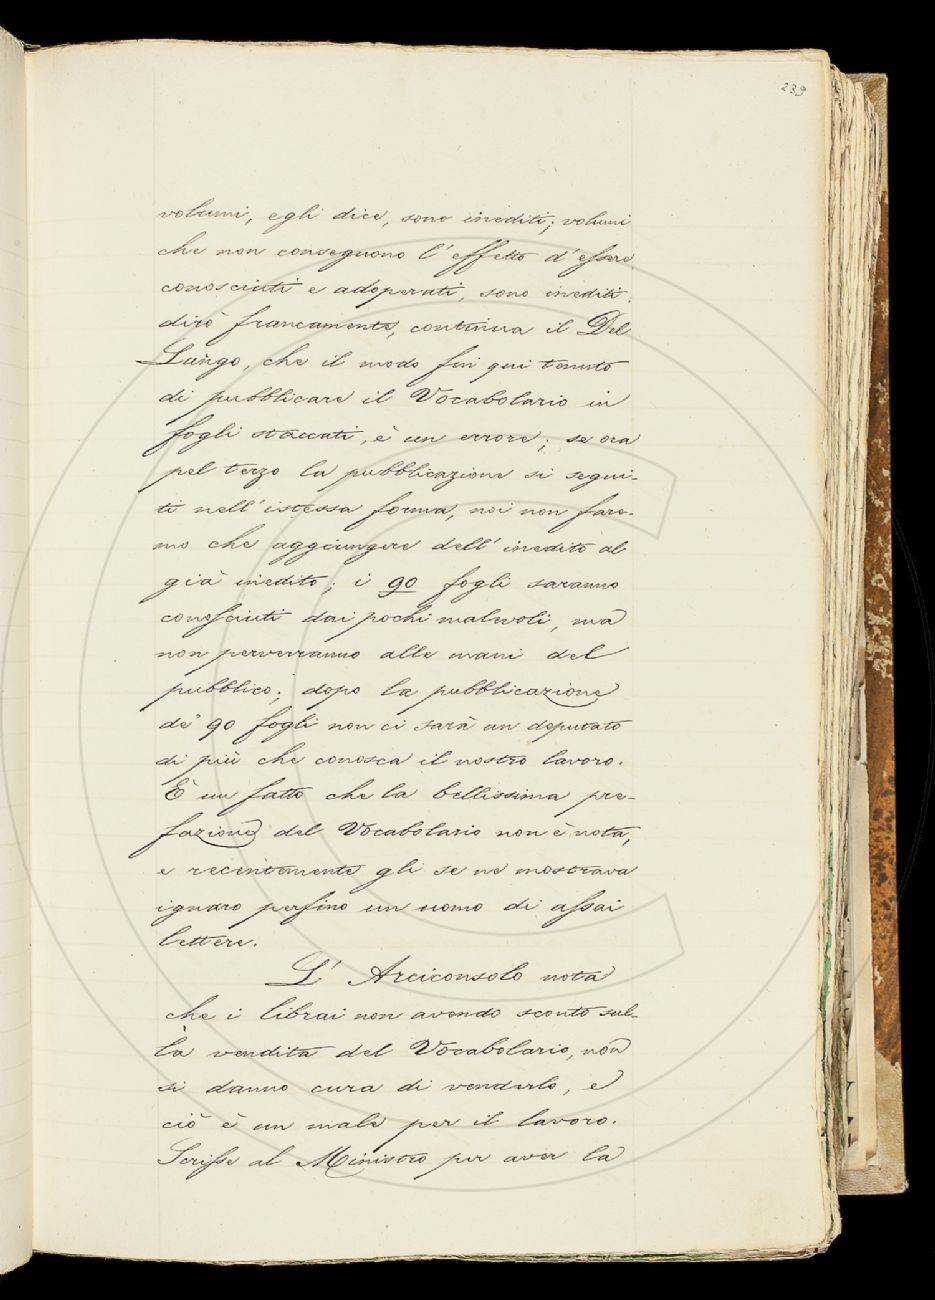 239
volumi, egli dice, sono inediti; volumi
che non conseguono l'effetto d'essere
conosciuti e adoperati, sono inediti:
dirò francamente, continua il Del
Lungo, che il modo fin qui tenuto
di pubblicare il Vocabolario in
fogli staccati, è un errore; se ora
pel terzo la pubblicazione si segui-
ti nell'istessa forma, noi non fare-
mo che aggiungere dell'inedito al
già inedito; i 90 fogli saranno
conosciuti dai pochi malevoli, ma
non perverranno alle mani del
pubblico; dopo la pubblicazione
de' 90 fogli non ci sarà un deputato
di più che conosca il nostro lavoro.
È un fatto che la bellissima pre-
fazione del Vocabolario non è nota,
e recentemente gli se ne mostrava
ignaro perfino un uomo di assai
lettere.
L'Arciconsolo nota
che i librai non avendo sconto sul-
la vendita del Vocabolario, non
si danno cura di venderlo, e
ciò è un male per il lavoro.
Scrisse al Ministro per aver la